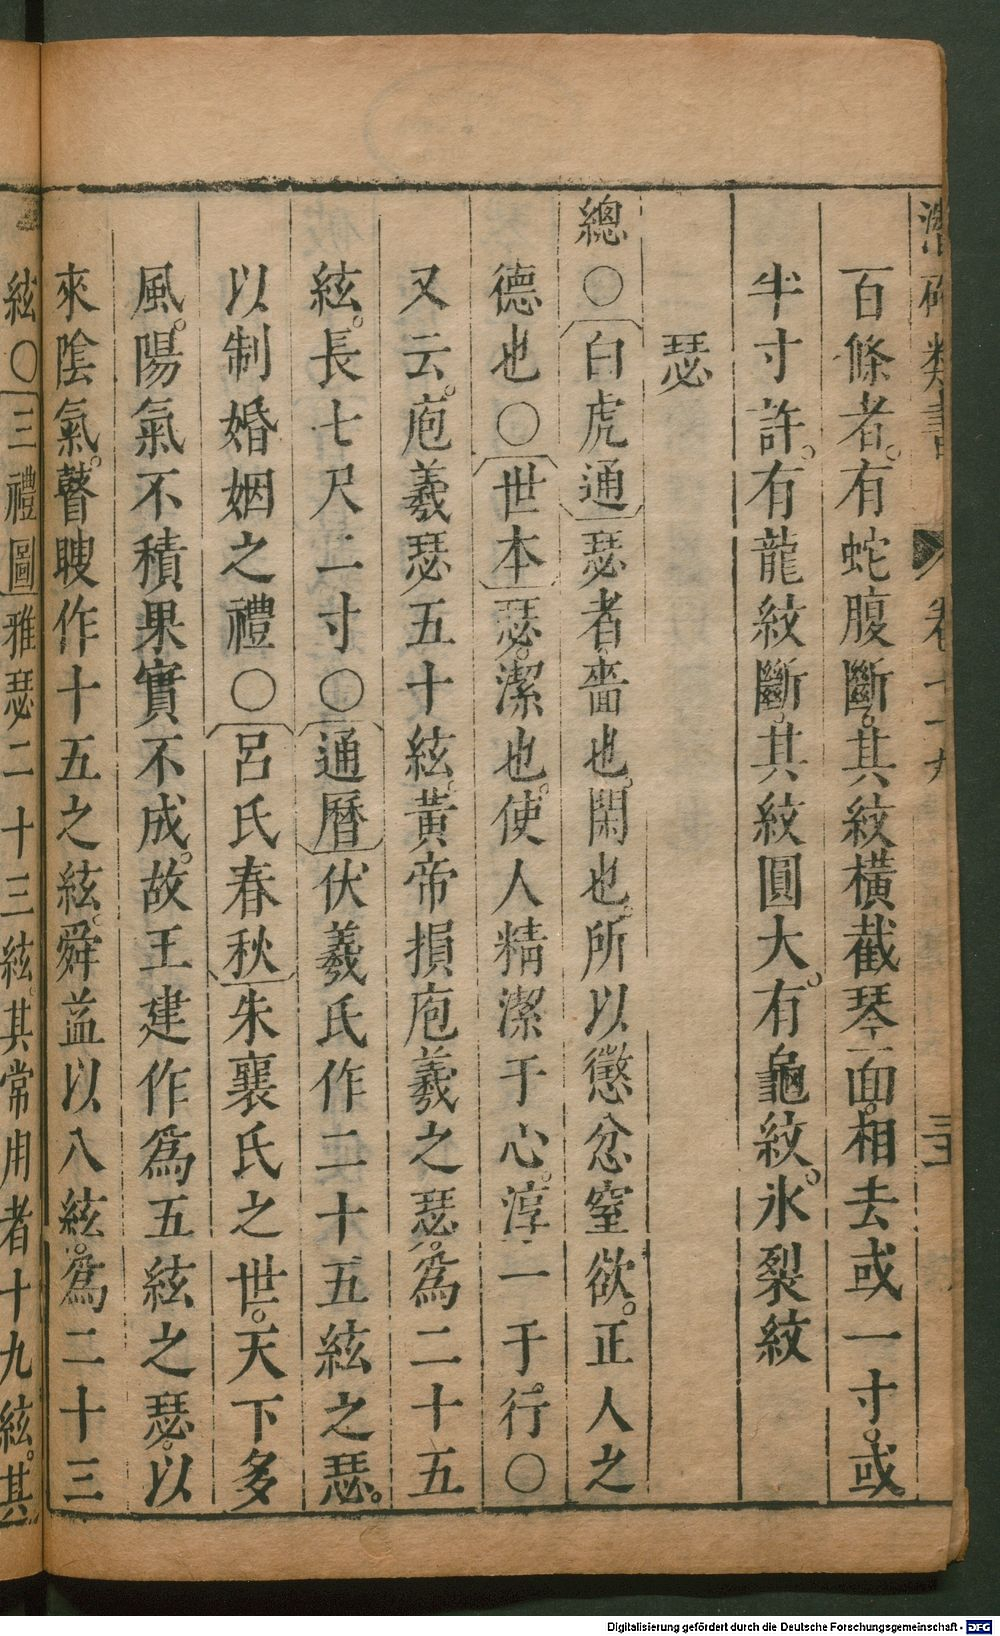 類書 卷十九
百條者。有蛇腹斷。其紋橫截琴面。相去或一寸。或
半寸許。有龍紋斷。其紋圓大。有龜紋。氷裂紋
瑟
總○白虎通瑟者。嗇也。閑也。所以懲忿窒欲。正人之
德也○世本瑟。潔也。使人精潔于心。淳一于行。○
又云。庖羲瑟五十絃。黃帝損庖羲之瑟。為二十五
絃。長七尺二寸○通曆伏羲氏作二十五絃之瑟。
以制婚姻之禮○呂氏春秋朱襄氏之世。天下多
風。陽氣不積。果實不成。故王建作為五絃之瑟。以
來陰氣。瞽瞍作十五之絃。舜益以八絃。為二十三
絃○三禮圖雅瑟二十三絃。其常用者十九絃。其
Digitalisierung gefördert durch die Deutsche Forschungsgemeinschaft - DFG